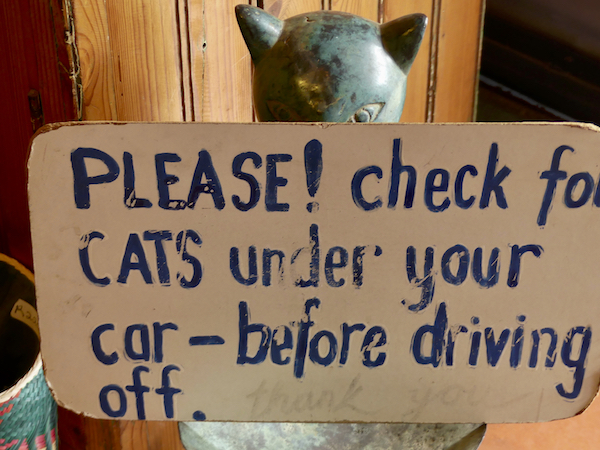 PLEASE! check for
CATS under your
car - before driving
off. thank you